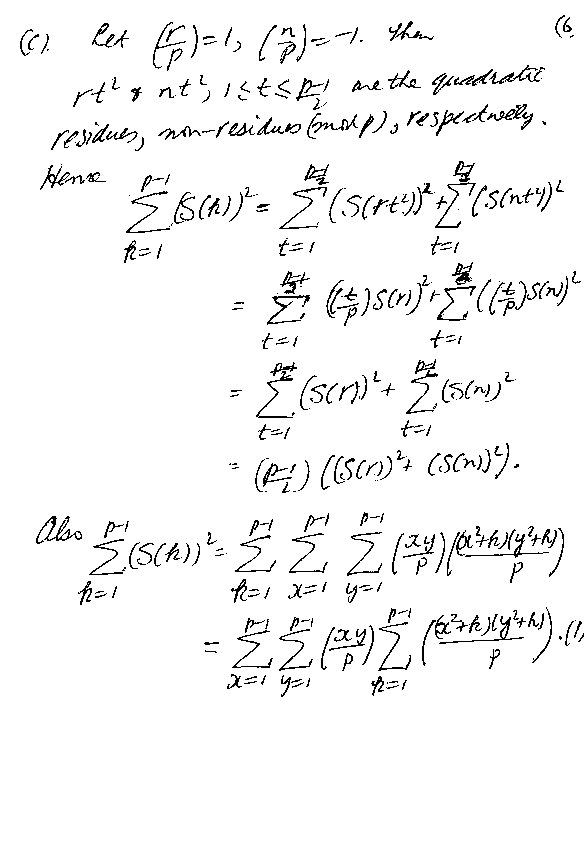 (C). Let (r/p)=1, (n/p)=-1. Then (6.
rt² & nt², 1≤t≤(p-1)/2 are the quadratic
residues, non-residues (mod p), respectively.
Hence ∑_{k=1}^{p-1} (S(k))² = ∑_{t=1}^{(p-1)/2} (S(rt²))² + ∑_{t=1}^{(p-1)/2} (S(nt²))²
= ∑_{t=1}^{(p-1)/2} ((t/p)S(r))² + ∑_{t=1}^{(p-1)/2} ((t/p)S(n))²
= ∑_{t=1}^{(p-1)/2} (S(r))² + ∑_{t=1}^{(p-1)/2} (S(n))²
= ((p-1)/2) ((S(r))² + (S(n))²).
Also ∑_{k=1}^{p-1} (S(k))² = ∑_{k=1}^{p-1} ∑_{x=1}^{p-1} ∑_{y=1}^{p-1} (xy/p) ((x²+k)(y²+k)/p)
= ∑_{x=1}^{p-1} ∑_{y=1}^{p-1} (xy/p) ∑_{k=1}^{p-1} ((x²+k)(y²+k)/p). (1)